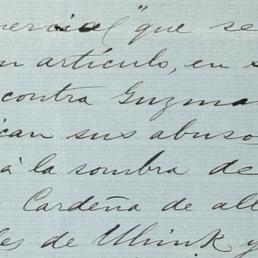 ercial" que se
n artículo, en s
contra Guzma
ican sus abuso
à la sombra de
Cardeña de all
es de Uhink y